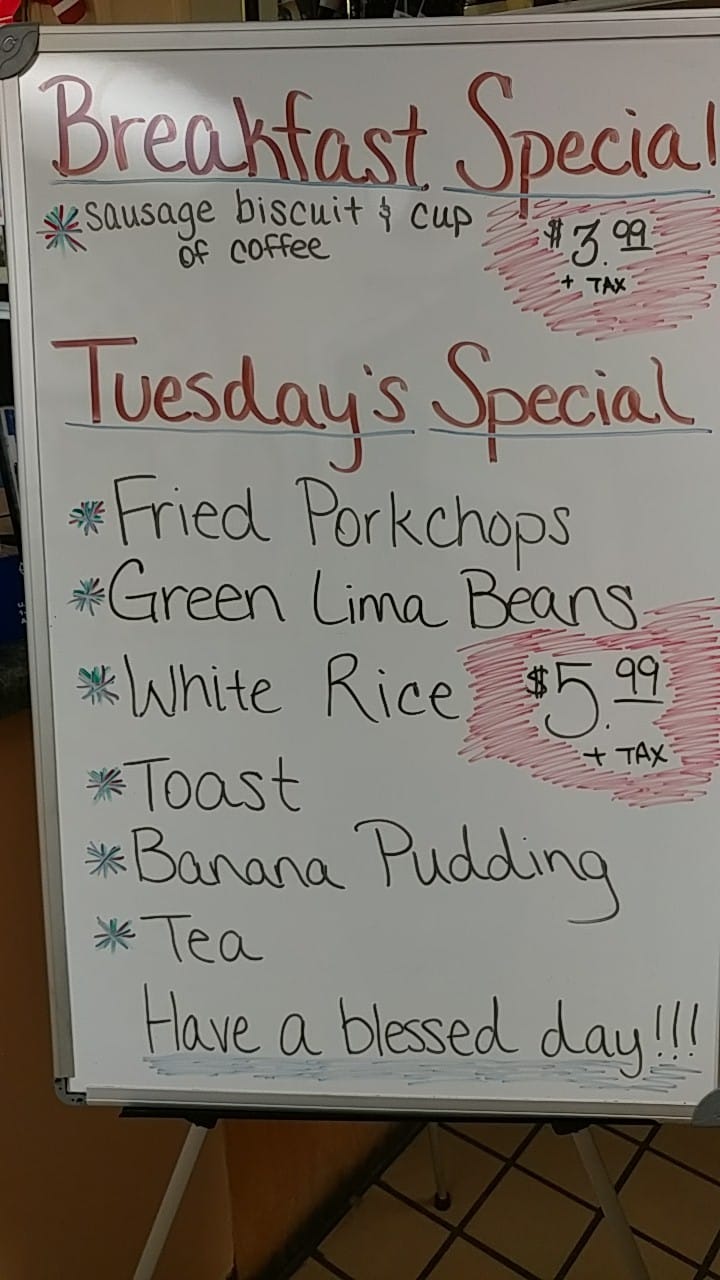 Breakfast Special
*Sausage biscuit & cup
of coffee
$3.99
+ TAX
Tuesday's Special
*Fried Porkchops
*Green Lima Beans
*White Rice
$5.99
+ TAX
*Toast
*Banana Pudding
*Tea
Have a blessed day!!!